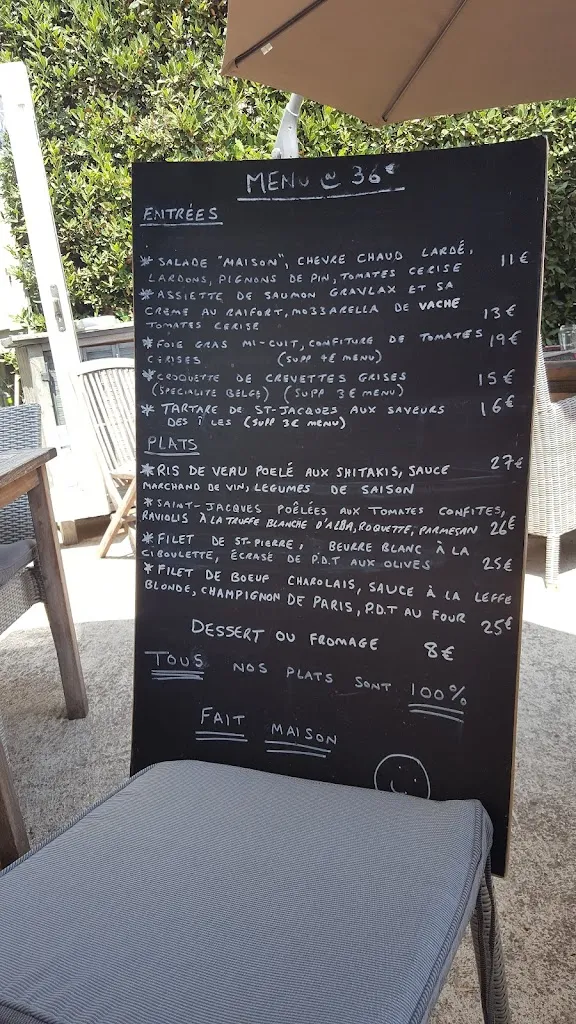 MENU @ 36€
ENTRÉES
* SALADE "MAISON", CHEVRE CHAUD LARDÉ, 11€
LARDONS, PIGNONS DE PIN, TOMATES CERISE
* ASSIETTE DE SAUMON GRAVLAX ET SA
CREME AU RAIFORT, MOZZARELLA DE VACHE 13€
TOMATES CERISE
* FOIE GRAS MI-CUIT, CONFITURE DE TOMATES 19€
CERISES (SUPP 4€ MENU)
* CROQUETTE DE CREVETTES GRISES 15€
(SPECIALITE BELGE) (SUPP 3€ MENU)
* TARTARE DE ST-JACQUES AUX SAVEURS 16€
DES ÎLES (SUPP 3€ MENU)
PLATS
* RIS DE VEAU POELÉ AUX SHITAKIS, SAUCE 27€
MARCHAND DE VIN, LEGUMES DE SAISON
* SAINT-JACQUES POÊLÉES AUX TOMATES CONFITES,
RAVIOLIS À LA TRUFFE BLANCHE D'ALBA, ROQUETTE, PARMESAN 26€
* FILET DE ST-PIERRE, BEURRE BLANC À LA
CIBOULETTE, ÉCRASÉ DE P.D.T AUX OLIVES 25€
* FILET DE BOEUF CHAROLAIS, SAUCE À LA LEFFE
BLONDE, CHAMPIGNON DE PARIS, P.D.T AU FOUR 25€
DESSERT OU FROMAGE 8€
TOUS NOS PLATS SONT 100%
FAIT MAISON